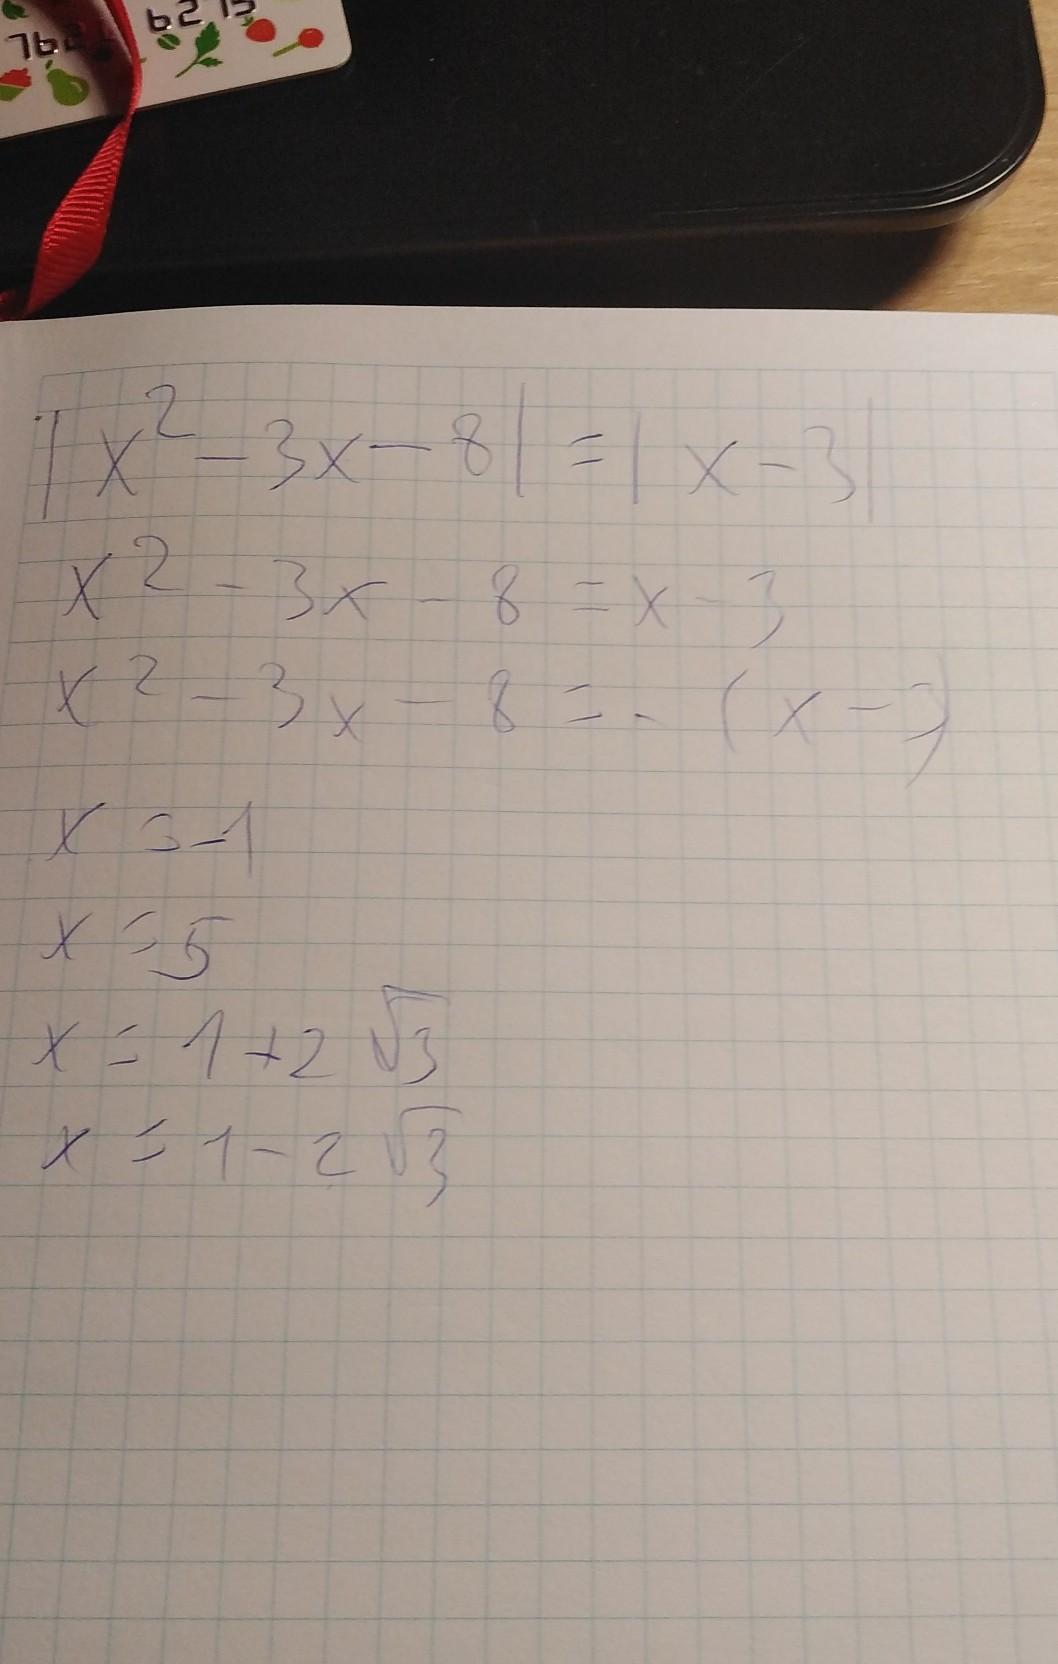 |x² - 3x - 8| = |x - 3|
x² - 3x - 8 = x - 3
x² - 3x - 8 = - (x - 3)
x = -1
x = 5
x = 1 + 2 √3
x = 1 - 2 √3